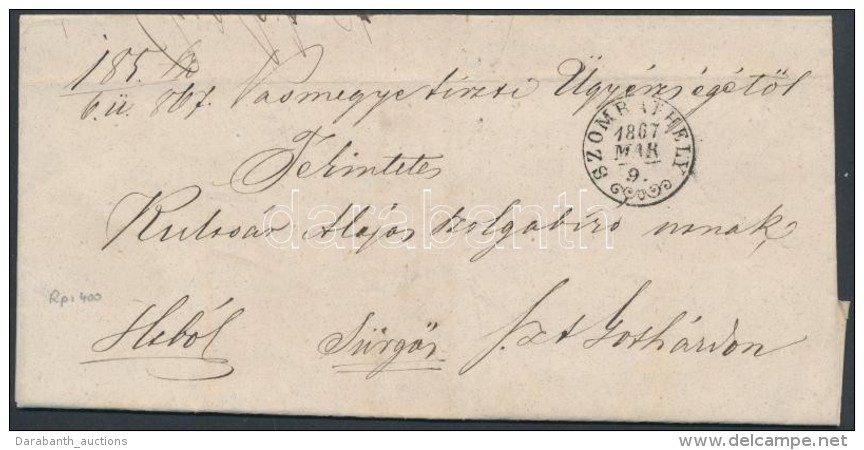 185.
6. ü. 867. Vasmegye tiszti Ügyészségétől
SZOMBATHELY
1867
MAR
9.
Tekintetes
darabanth
Kulcsár Alajos szolgabíró urnak
Rp: 400
Hiból Sürgős Szt Gothárdon
Darabanth_auctions
www.delcampe.net